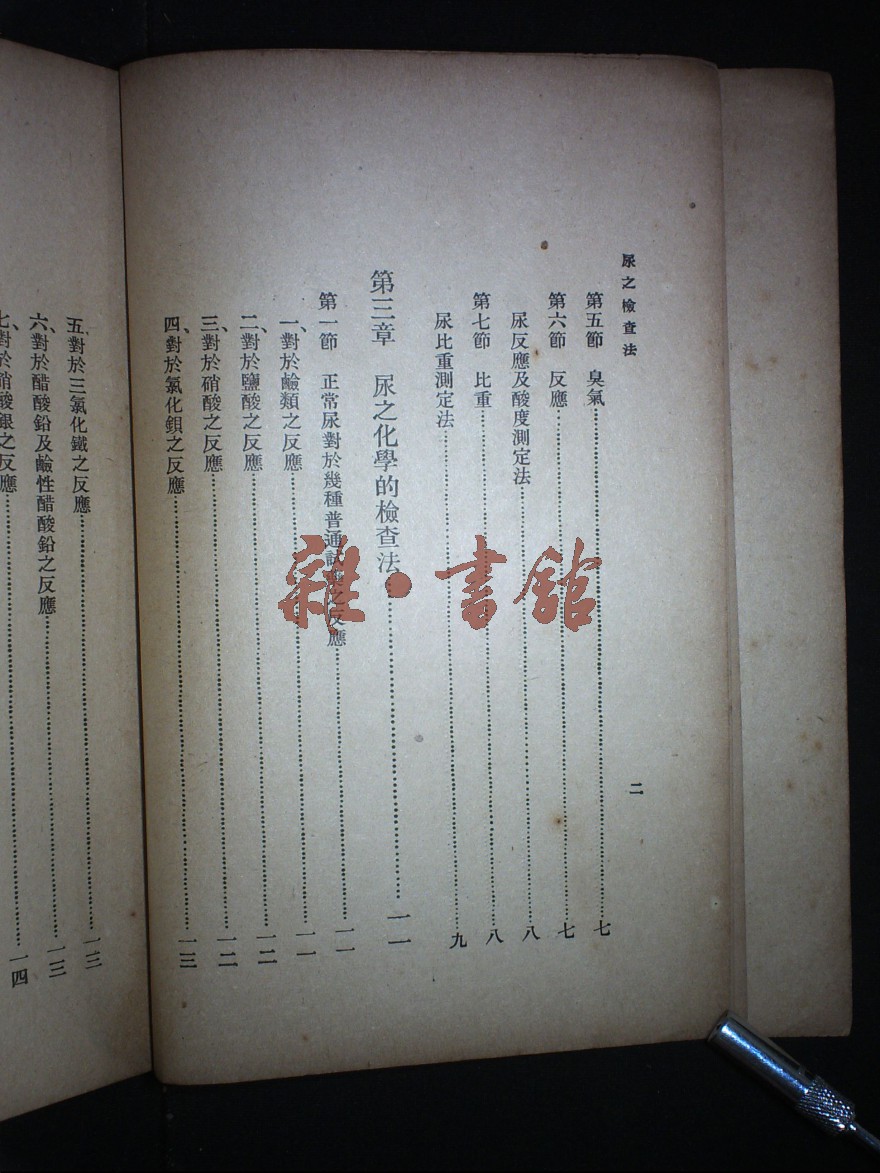 尿之檢查法
二
第五節 臭氣……七
第六節 反應……七
尿反應及酸度測定法……八
第七節 比重……八
尿比重測定法……九
第三章 尿之化學的檢查法……一一
第一節 正常尿對於幾種普通試藥之反應……一一
一、對於鹼類之反應……一一
二、對於鹽酸之反應……一二
三、對於硝酸之反應……一二
四、對於氯化鋇之反應……一三
五、對於三氯化鐵之反應……一三
六、對於醋酸鉛及鹼性醋酸鉛之反應……一三
七、對於硝酸銀之反應……一四
雜·書館